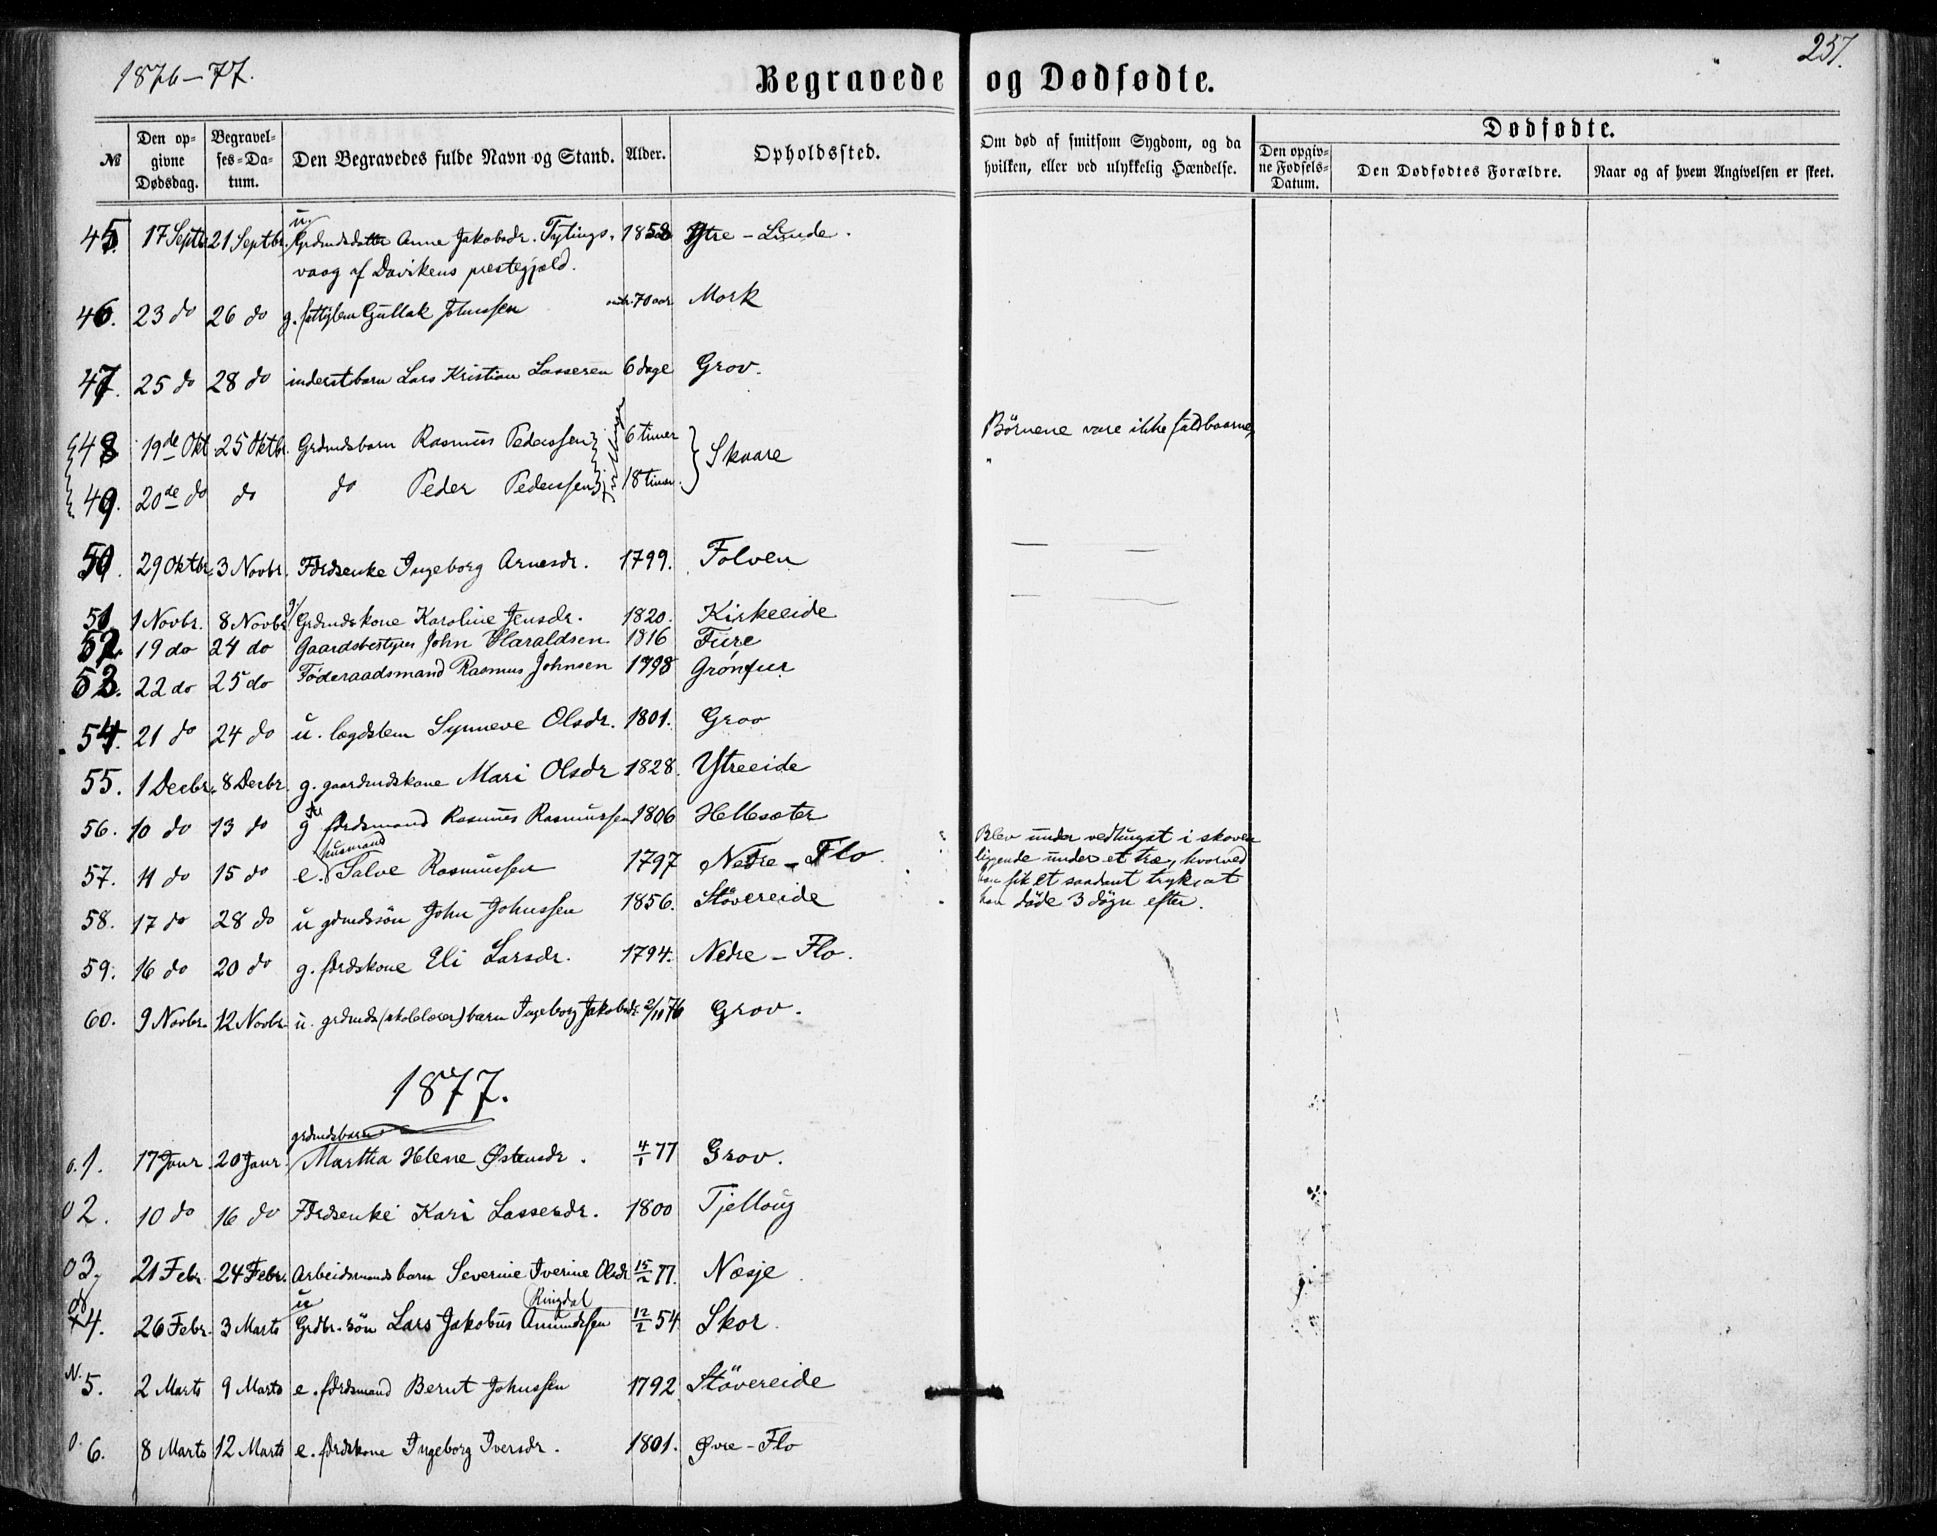 1876-77.
Begravede og Dødfødte.
257.
№
Den opgivne Dødsdag.
Begravelses-Datum.
Den Begravedes fulde Navn og Stand.
Alder.
Opholdssted.
Om død af smitsom Sygdom, og da hvilken, eller ved ulykkelig Hændelse.
Dødfødte.
Den opgivne Fødsels-Datum.
Den Dødfødtes Forældre.
Naar og af hvem Angivelsen er skeet.
45. 17 Septbr 21 Septbr. u. Grdmdsdatter Anne Jakobsdr. Tytings- 1858 Ytre-Linde.
vaag af Davikens prestegjæld.
46. 23 do 26 do g. fattiglem Gullak Johnssen 70 aar Mork
47. 25 do 28 do inderstbarn Lars Kristian Lassesen 6 dage Grov.
48 19de Okt. 25 Oktbr. Grdmdsbarn Rasmus Pederssen 6 timer Skaare Børnene vare ikke fuldbaarne,
49. 20de do do do Peder Pederssen 18 timer.
50. 29 Oktbr. 3 Novbr. Fdrdsenke Ingeborg Arnesdr. 1799. Folven
51. 1 Novbr. 8 Novbr. g/ Grdmdskone Karoline Jensdr. 1820. Kirkeeide
52. 19 do 24 do Gaardsbestyrer John Haraldsen 1816 Fure
53. 22 do 25 do Føderaadsmand Rasmus Johnsen 1798 Grønfur
54. 21 do 24 do u. lægdslem Synneve Olsdr. 1801. Grov
55. 1 Decbr. 8 Decbr. g. gaardmdskone Mari Olsdr 1828. Ytreeide
56. 10 do 13 do g fdrdsmand Rasmus Rasmussen 1806 Hellesæter
57. 11 do 15 do e. husmand Salve Rasmussen 1797 Nedre-Flo.
Blev under vedhugst i skoven
liggende under et træ, hvorved
han fik et saadant tryk, at
han døde 3 døgn efter.
58. 17 do 28 do u grdmdssøn John Johnssen 1856. Støvereide
59. 16 do 20 do g. fdrdskone Eli Larsdr. 1794. Nedre-Flo.
60. 9 Novbr. 12 Novbr. u. grdmds (skolelærer) barn Ingeborg Jakobsdr. 2/11 76 Grov.
1877.
o. 1. 17 Janr. 20 Janr. grdmdsbarn Martha Helene Østensdr. 4/1 77 Grov.
o 2. 10 do 16 do Fdrdsenke Kari Lassesdr. 1800 Tjellaug
o 3. 21 Febr. 24 Febr. Arbeidsmandsbarn Severine Iverine Olsdr 15/2 77. Næsje
4. 26 Febr. 3 Marts u Grdbr.søn Lars Jakobus Amundssen Ringdal 12/2 54 Skor
N. 5. 2 Marts 9 Marts e. fdrdsmand Bernt Johnssen 1792 Støvereide
o. 6. 8 Marts 12 Marts e. fdrdskone Ingeborg Iversdr. 1801. Øvre-Flo